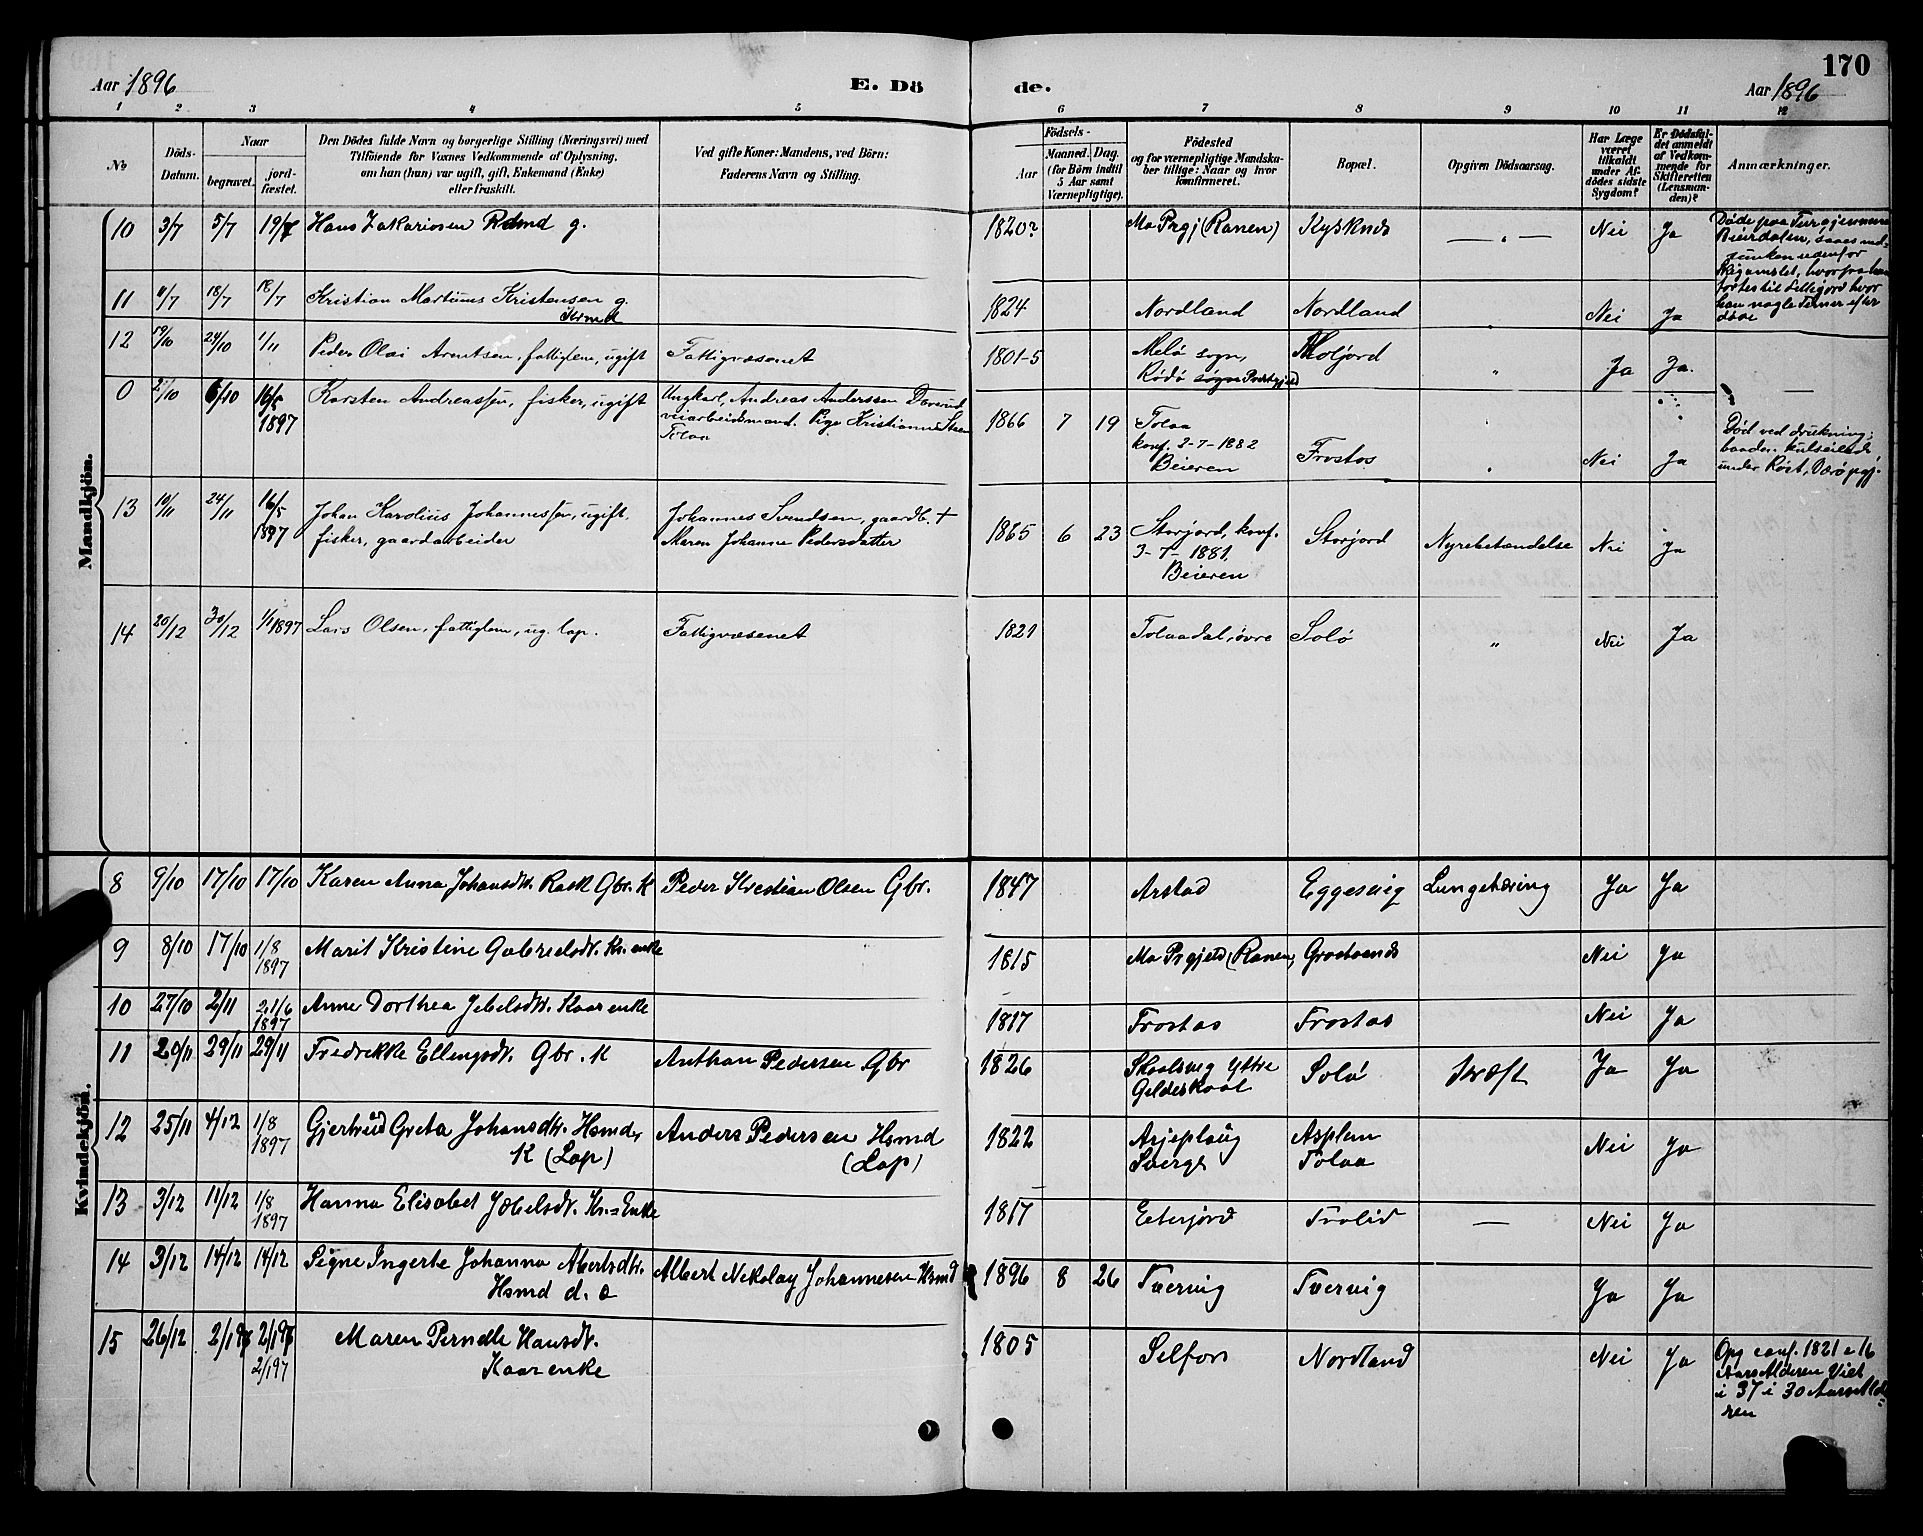 Aar 1896
E. Dö
de.
Aar 1896
170
1 2 3 4 5 6 7 8 9 10 11 12
No
Döds-
Datum.
Naar
begravet.
jord-
fæstet.
Den Dödes fulde Navn og borgerlige Stilling (Næringsvei) med
Tilföiende for Voxnes Vedkommende af Oplysning,
om han (hun) var ugift, gift, Enkemand (Enke)
eller fraskilt.
Ved gifte Koner: Mandens, ved Börn:
Faderens Navn og Stilling.
Födsels-
Aar
Maaned. Dag.
(for Börn indtil
5 Aar samt
Værnepligtige).
Födested
og for værnepligtige Mandska-
ber tillige: Naar og hvor
konfirmeret.
Bopæl.
Opgiven Dödsaarsag.
Har Læge
været
tilkaldt
under Af-
dödes sidste
Sygdom?
Er Dödsfal-
det anmeldt
af Vedkom-
mende for
Skifteretten
(Lensman-
den)?
Anmærkninger.
Mandkjön.
10 3/7 5/7 19/7 Hans Zakariasen g. 1820? Mo Prgj (Ranen) — " — Nei Ja
Døde paa
Beierdalen, saaes ned-
sunken udenfor
hvorfra han
førtes til Lillejord hvor
han nogle Timer efter
døde
11 11/7 18/7 18/7 Kristian Martinus Kristensen g. 1824 Nordland Nordland " Nei Ja
Krmd
12 19/10 24/10 1/11 Peder Olai Arntsen, fattiglem, ugift Fattigvæsenet 1801-5 Melø sogn, Moljord " Ja Ja.
Rødø Prestgjeld
0 2/10 6/10 16/5 Karsten Andreassen, fisker, ugift Ungkarl, Andreas Anderssen
1897 veiarbeidsmand. Pige Kristianne
Tolaa
1866 7 19 Tolaa
konf. 2-7-1882
Beieren Frostos " Nei Ja
Død ved drukning;
baaden kulseilede
under Røst, Værø pgj.
13 10/11 24/11 16/5 Johan Karolius Johannessen, ugift, Johannes Svendsen, gaardb. +
1897 fisker, gaardarbeider Maren Johanne Pedersdatter
1865 6 23 Storjord, konf. Storjord Nyrebetændelse Nei Ja
3-7-1881,
Beieren
14 20/12 30/12 1/1 1897 Lars Olsen, fattiglem, ug. lap. Fattigvæsenet 1821 Tolaadal, øvre Solø " Nei Ja
Kvindekjön.
8 9/10 17/10 17/10 Karen Anna Johansdtr. Rask Gbr. K Peder Kristian Olsen Gbr. 1847 Arstad Eggesvig Lungetæring Ja Ja
9 8/10 17/10 1/8 Marit Kristine Gabrielsdtr. Kr. enke 1815 Mo Prgjeld (Ranen) Nei Ja
1897
10 27/10 2/11 21/6 Anne Dorthea Jebelsdtr. Kaarenke 1817 Frostos Frostos Nei Ja
1897
11 20/11 29/11 29/11 Fredrikke Ellingsdtr. Gbr. K Anthon Pedersen Gbr 1826 Skaalsvig Yttre Solø Kræft Ja Ja
Gildeskaal
12 25/11 4/12 1/8 Gjertrud Greta Johansdtr. Hsmds Anders Pedersen Hsmd 1822 Arjeploug Nei Ja
1897 K (Lap) (Lap) Sverge Tolaa
13 3/12 11/12 1/8 Hanna Elisabet Jebelsdtr. Kr.=Enke 1817 Eiterjord Trolid — Nei Ja
1897
14 3/12 14/12 14/12 Signe Ingerte Johanna Albertsdtr. Albert Nikolay Johannesen Hsmd 1896 8 26 Tvervig Tvervig Ja Ja
Hsmd d. a
15 26/12 2/1 97 2/1 97 Maren Pernelle Hansdtr. 1805 Selfors Nordland Nei Ja
2/197 Kaarenke
Opg conf. 1821 i 16
Aars Alderen Viet
i 37 i 30 Aars Al
deren